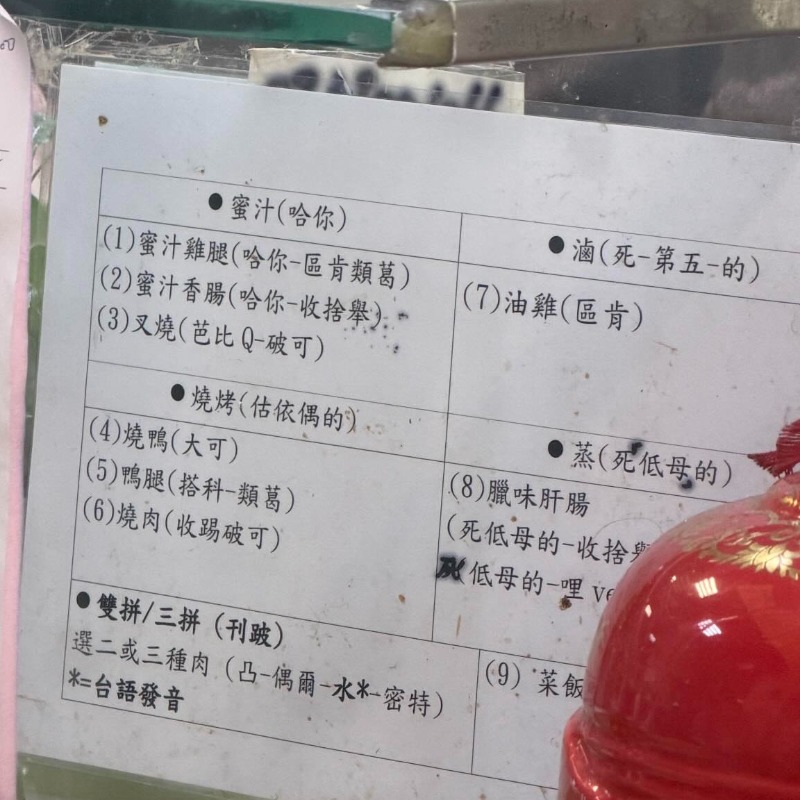 ●蜜汁(哈你)
(1)蜜汁雞腿(哈你-區肯類葛)
(2)蜜汁香腸(哈你-收捨舉)
(3)叉燒(芭比Q-破可)
●燒烤(估依偶的)
(4)燒鴨(大可)
(5)鴨腿(搭科-類葛)
(6)燒肉(收踢破可)
●雙拼/三拼(刊跛)
選二或三種肉(凸-偶爾-水*-密特)
*=台語發音
●滷(死-第五-的)
(7)油雞(區肯)
●蒸(死低母的)
(8)臘味肝腸
(死低母的-收捨
低母的-哩 ve
(9) 菜飯